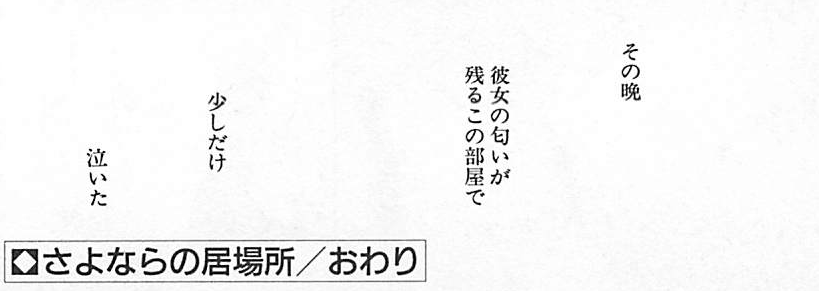 その晩
彼女の匂いが
残るこの部屋で
少しだけ
泣いた
◆さよならの居場所／おわり